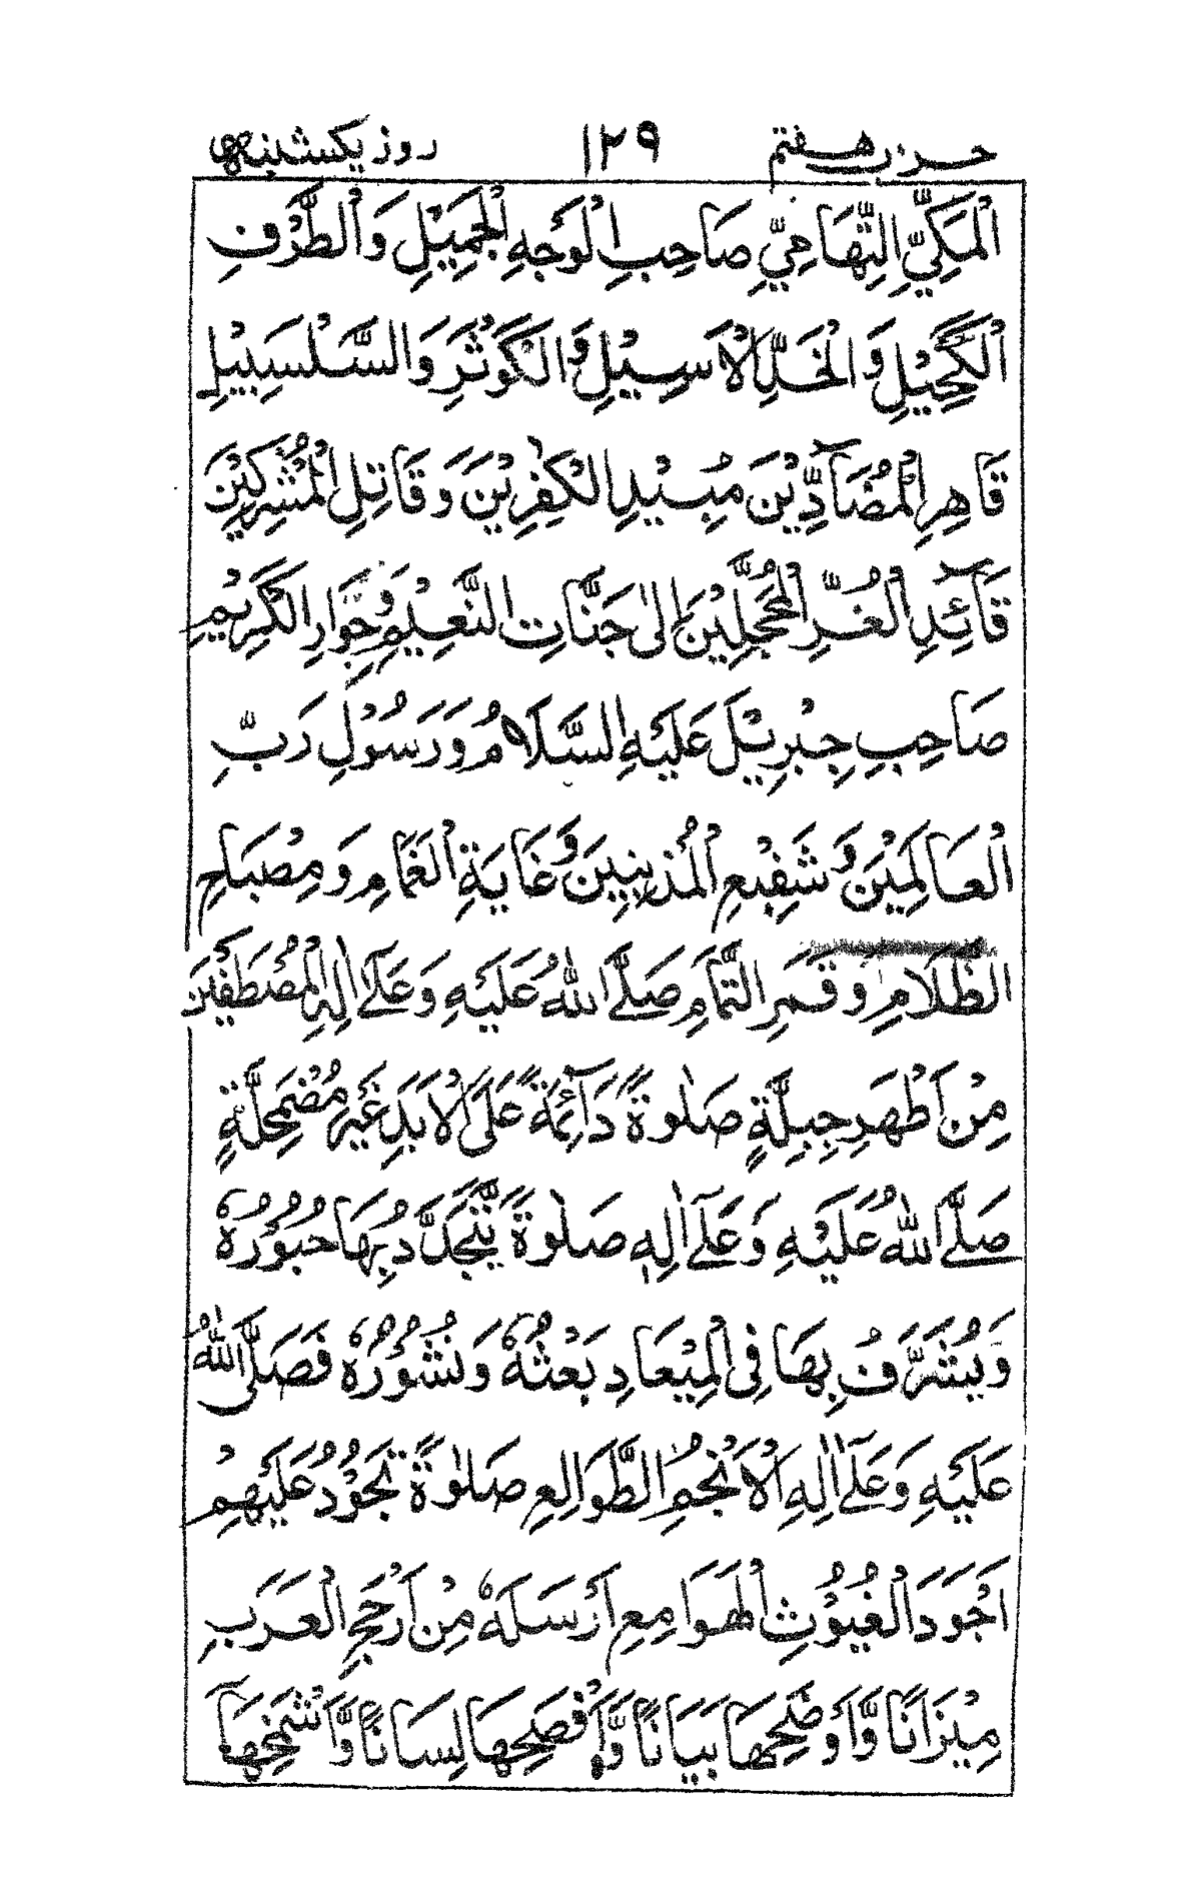 حزب هفتم ١٢٩ روز یکشنبہ
الْمَكِّيِّ التِّهَامِيِّ صَاحِبِ الْوَجْهِ الْجَمِيْلِ وَالطَّرْفِ
الْكَحِيْلِ وَالْخَدِّ الْاَسِيْلِ وَالْكَوْثَرِ وَالسَّلْسَبِيْلِ
قَاهِرِ الْمُضَآدِّيْنَ مُبِيْدِ الْكٰفِرِيْنَ وَقَاتِلِ الْمُشْرِكِيْنَ
قَآئِدِ الْغُرِّ الْمُحَجَّلِيْنَ اِلٰى جَنَّاتِ النَّعِيْمِ وَجِوَارِ الْكَرِيْمِ
صَاحِبِ جِبْرِيْلَ عَلَيْهِ السَّلَامُ وَرَسُوْلِ رَبِّ
الْعَالَمِيْنَ وَشَفِيْعِ الْمُذْنِبِيْنَ وَغَايَةِ الْغَمَامِ وَمِصْبَاحِ
الظَّلَامِ وَقَمَرِ التَّمَامِ صَلَّى اللّٰهُ عَلَيْهِ وَعَلٰٓى اٰلِهِ الْمُصْطَفَيْنَ
مِنْ اَطْهَرِ جِبِلَّةٍ صَلٰوةً دَآئِمَةً عَلَى الْاَبَدِ غَيْرَ مُضْمَحِلَّةٍ
صَلَّى اللّٰهُ عَلَيْهِ وَعَلٰٓى اٰلِهٖ صَلٰوةً يَّتَجَدَّدُ بِهَا حُبُوْرُهٗ
وَيُشَرَّفُ بِهَا فِى الْمِيْعَادِ بَعْثُهٗ وَنُشُوْرُهٗ فَصَلَّى اللّٰهُ
عَلَيْهِ وَعَلٰٓى اٰلِهِ الْاَنْجُمِ الطَّوَالِعِ صَلٰوةً تَجُوْدُ عَلَيْهِمْ
اَجْوَدَ الْغُيُوْثِ الْهَوَامِعِ اَرْسَلَهٗ مِنْ اَرْجَحِ الْعَرَبِ
مِيْزَانًا وَّاَوْضَحِهَا بَيَانًا وَّاَفْصَحِهَا لِسَانًا وَّاَشْمَخِهَآ